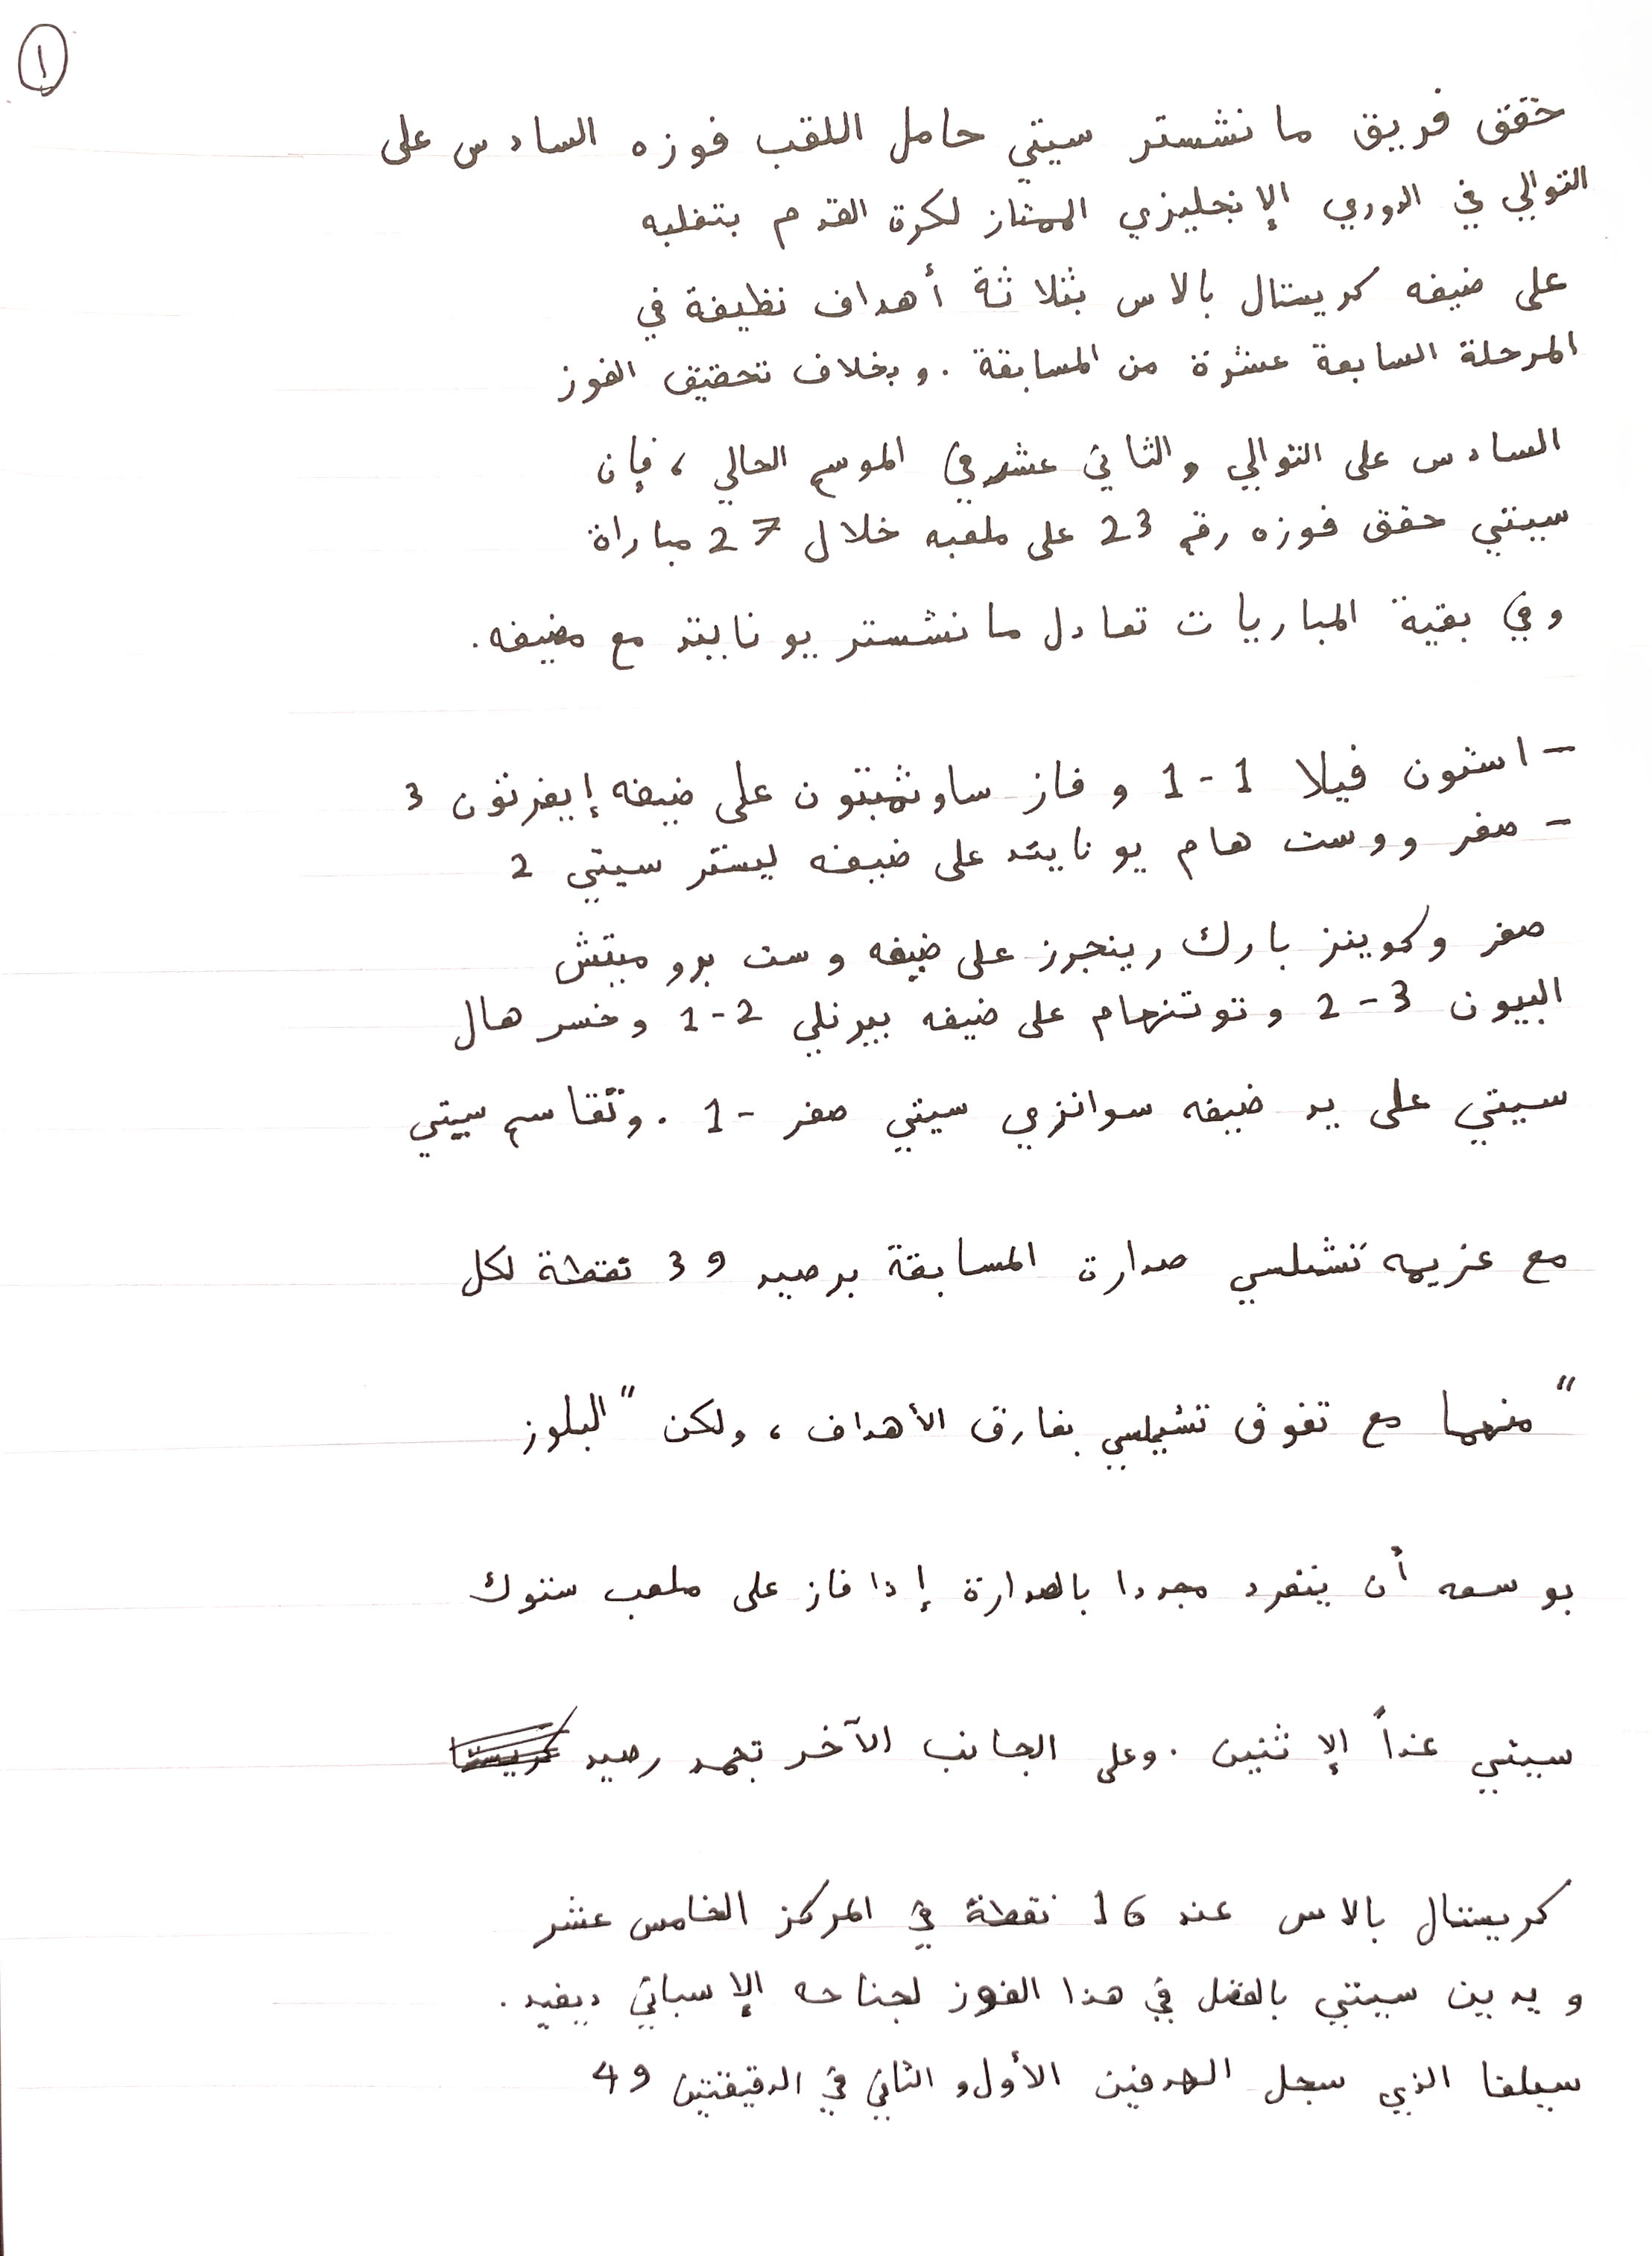 ١
حقق فريق مانشستر سيتي حامل اللقب فوزه السادس على
التوالي في الدوري الإنجليزي الممتاز لكرة القدم بتغلبه
على ضيفه كريستال بالاس بثلاثة أهداف نظيفة في
المرحلة السابعة عشرة من المسابقة . وبخلاف تحقيق الفوز
السادس على التوالي والثاني عشر في الموسم الحالي ، فإن
سيتي حقق فوزه رقم 23 على ملعبه خلال 27 مباراة
وفي بقية المباريات تعادل مانشستر يونايتد مع مضيفه .
- استون فيلا 1 - 1 وفاز ساوثمبتون على ضيفه إيفرتون 3
- صفر ووست هام يونايتد على ضيفه ليستر سيتي 2
صفر وكوينز بارك رينجرز على ضيفه وست بروميتش
البيون 3 - 2 وتوتنهام على ضيفه بيرنلي 2 - 1 وخسر هال
سيتي على يد ضيفه سوانزي سيتي صفر - 1 . وتقاسم سيتي
مع غريمه تشلسي صدارة المسابقة برصيد 39 نقطة لكل
" منهما مع تفوق تشيلسي بفارق الأهداف ، ولكن " البلوز
بوسعه أن ينفرد مجددا بالصدارة إذا فاز على ملعب ستوك
سيتي غداً الإثنين . وعلى الجانب الآخر تجمد رصيد
كريستال بالاس عند 16 نقطة في المركز الخامس عشر
ويدين سيتي بالفضل في هذا الفوز لجناحه الإسباني ديفيد .
سيلفا الذي سجل الهدفين الأول والثاني في الدقيقتين 49